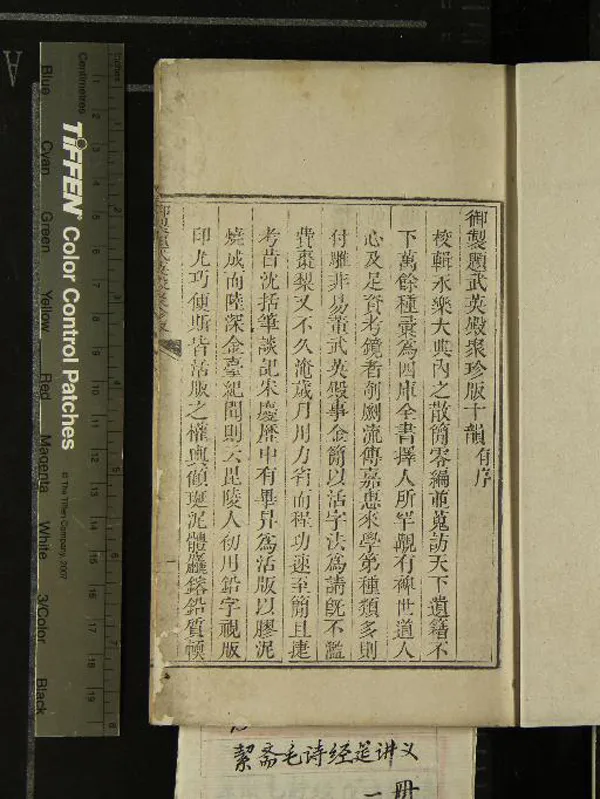 御製題武英殿聚珍版十韻有序
校輯永樂大典內之散簡零編並蒐訪天下遺籍不
下萬餘種彙為四庫全書擇人所罕覯有裨世道人
心及足資考鏡者剞劂流傳嘉惠來學第種類多則
付雕非易董武英殿事金簡以活字法為請既不濫
費棗梨又不久淹歲月用力省而程功速至簡且捷
考昔沈括筆談記宋慶曆中有畢昇為活版以膠泥
燒成而陸深金臺紀聞則云毘陵人初用鉛字視版
印尤巧便斯皆活版之權輿顧埏泥體麤鎔鉛質䎡
一
絜斋毛诗经筵讲义
一册
TIFFEN Color Control Patches
© The Tiffen Company, 2007
Centimetres
Inches
Blue
Cyan
Green
Yellow
Red
Magenta
White
3/Color
Black
1 2 3 4 5 6 7 8 9 10 11 12 13 14 15 16 17 18 19
A